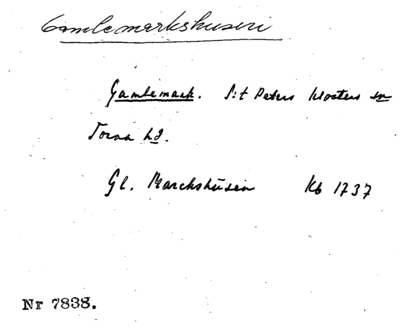 Gamlemarkshuseri
Gamlemark. S:t Peters Klosters sn
Torna hd.
Gl. Marckshusen Kb 1737
Nr 7838.